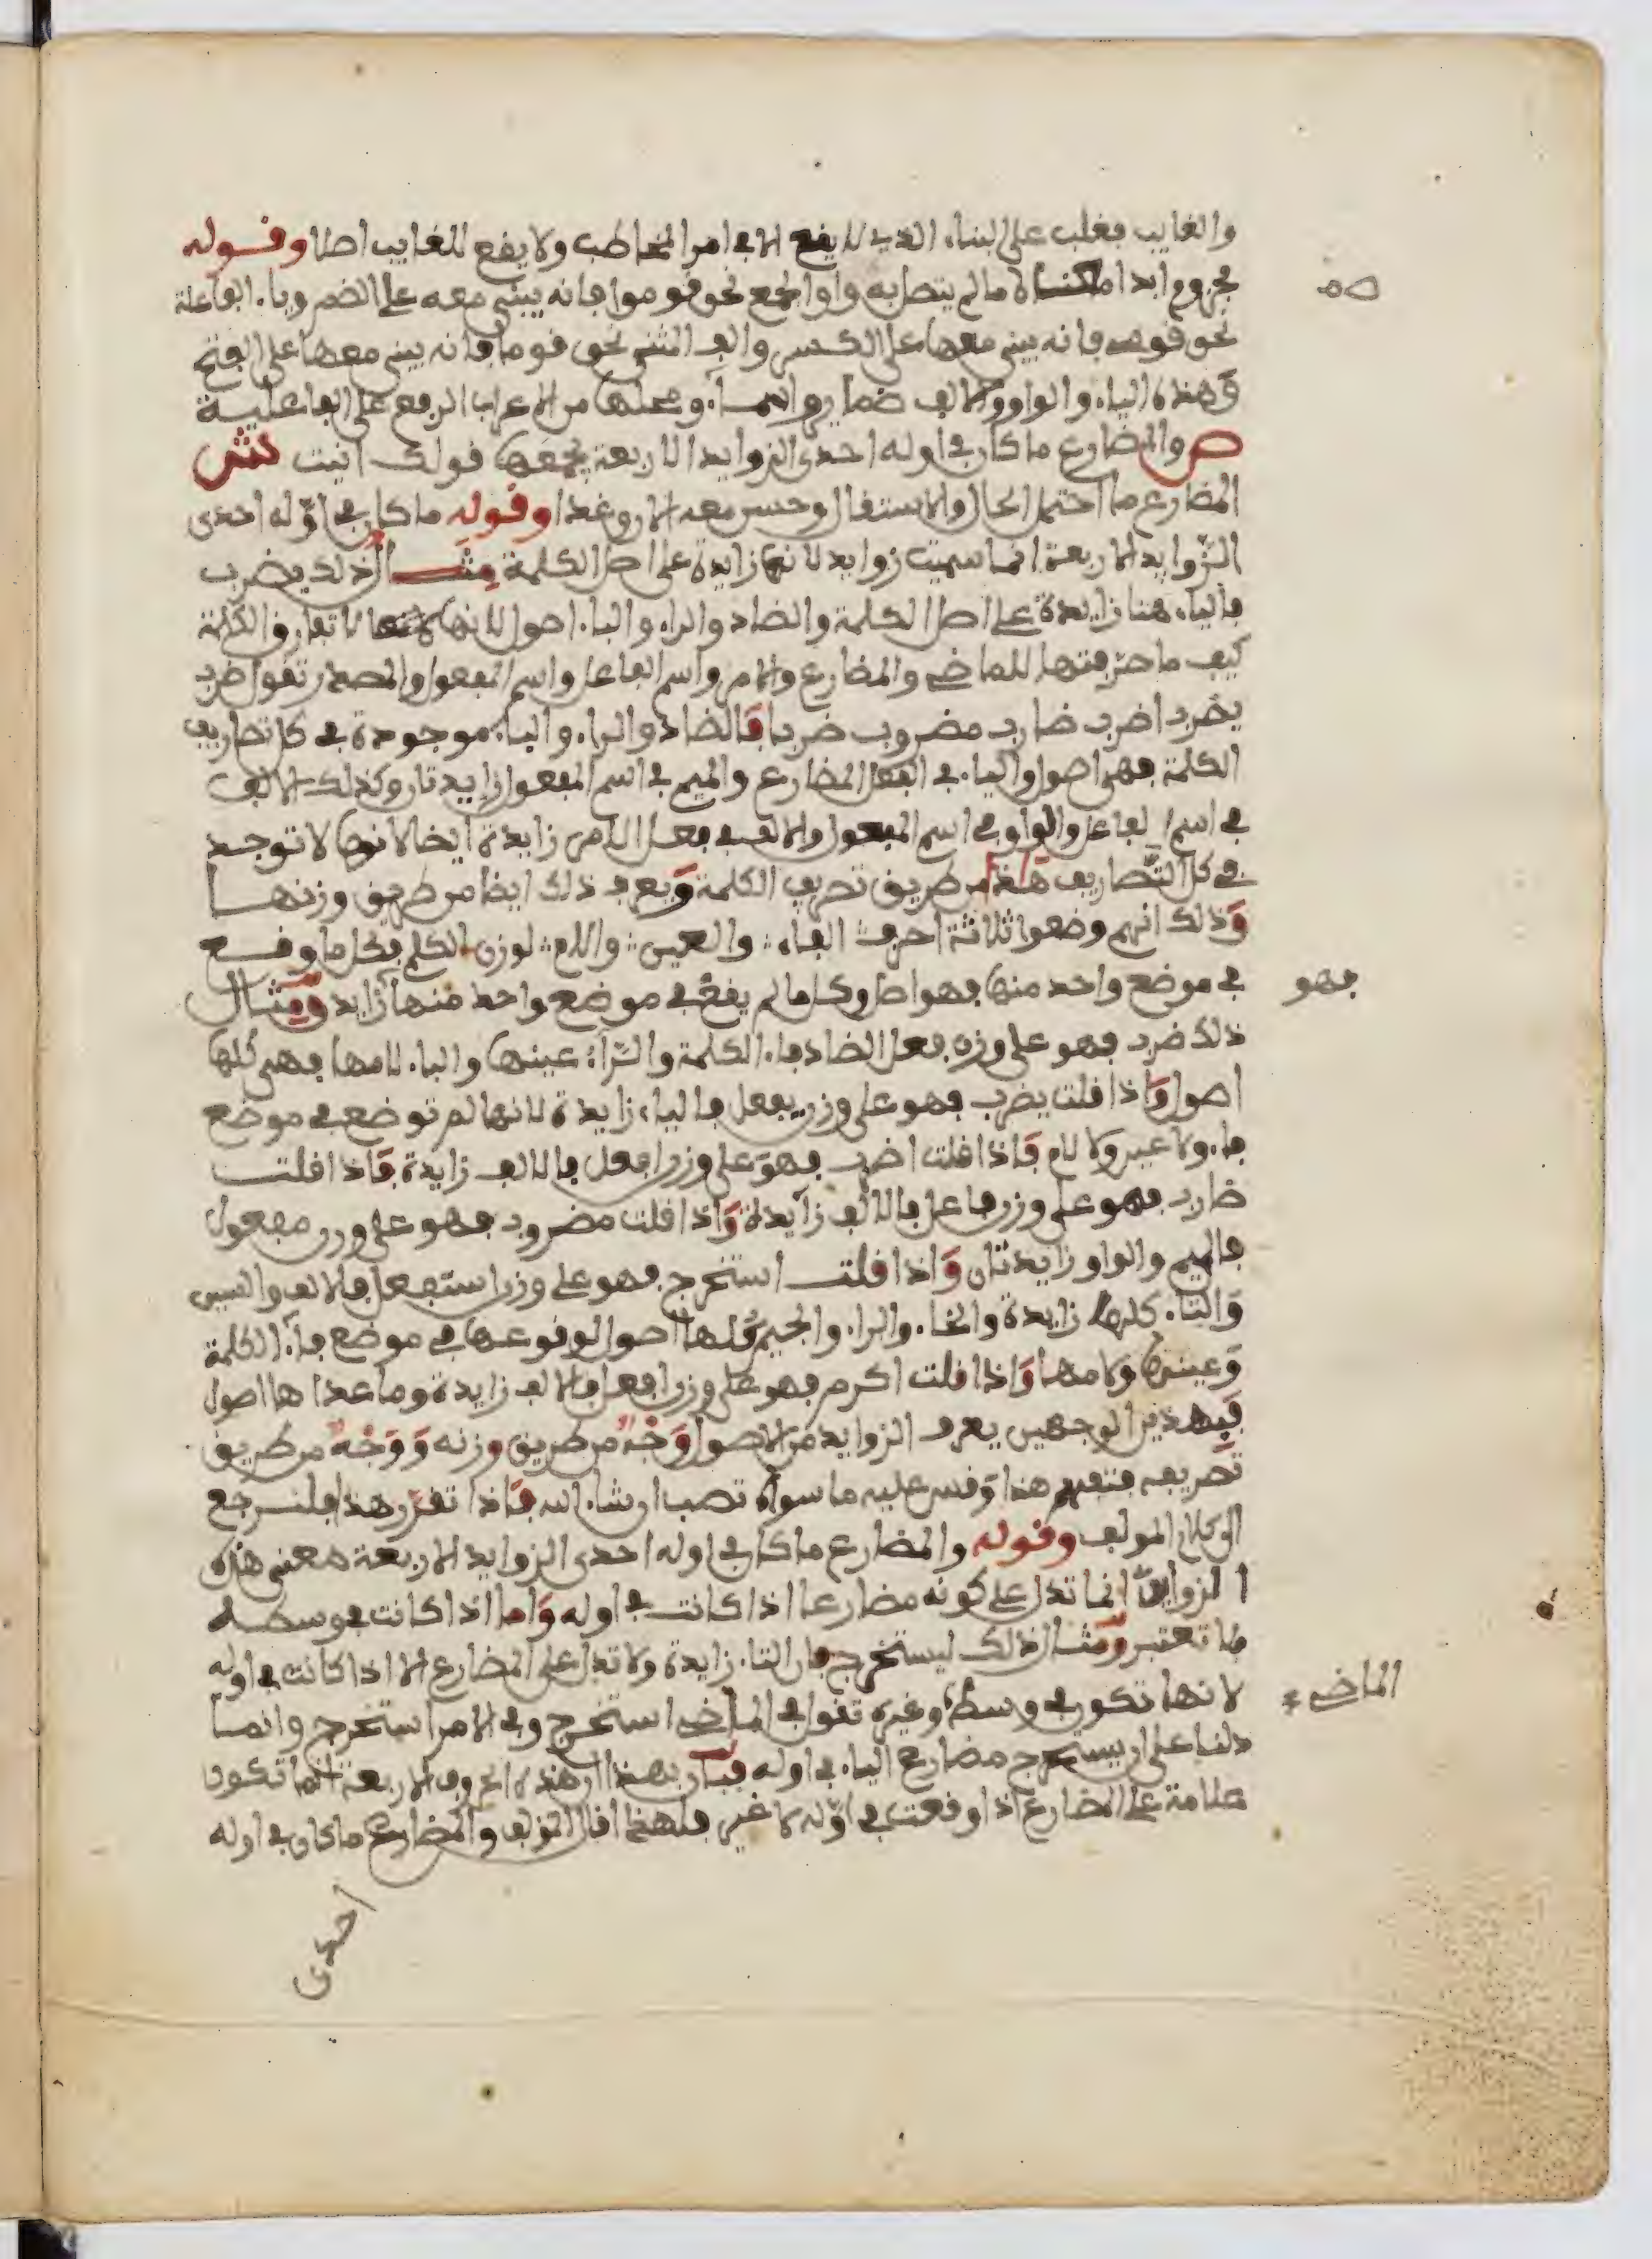 والغايب فغلب على البناء الذي لا يقع الا في امر المخاطب ولا يقع للغايب اصلا وقوله
مجزوم ابدا ما لم يتصل به واو الجمع نحو قوموا فانه يبنى معه على الضم وياء الفاعلة
نحو قومي فانه يبنى معها على الكسر والف المثنى نحو قوما فانه يبنى معها على الفتح
وهذه الياء والواو والالف ضماير واسماء ومحلها من الاعراب الرفع على الفاعلية
ص والمضارع ما كان في اوله احدى الزوايد الاربعة يجمعها قولك انيت ش
المضارع ما احتمل الحال والاستقبال وحسن معه الان وغدا وقوله ما كان في اوّله احدى
الزّوايد الاربعة انما سميت زوايد لانها زايدة على اصل الكلمة مثال ذلك يضرب
فالياء هنا زايدة على اصل الكلمة والضاد والراء والباء اصول لانها لا تفارق الكلمة
كيف ما صرفتها للماضي والمضارع والامر واسم الفاعل واسم المفعول والمصدر تقول ضرب
يضرب اضرب ضارب مضروب ضربا فالضاد والراء والباء موجودة في كل تصاريف
الكلمة فهي اصول والياء في الفعل المضارع والميم في اسم المفعول زايدتان وكذلك الالف
في اسم الفاعل والواو في اسم المفعول والالف في فعل الامر زايدة ايضا لانها لا توجد
في كل التّصاريف هذا من طريق تصريف الكلمة ويعرف ذلك ايضا من طريق وزنها
وذلك انهم وضعوا ثلاثة احرف الفاء والعين واللام لوزن الكلم فكل ما وقع
في موضع واحد منها فهو اصل وكل ما لم يقع في موضع واحد منها زايد ومثال
فهو
ذلك ضرب فهو على وزن فعل الضاد فاء الكلمة والرّاء عينها والباء لامها فهي كلها
اصول واذا قلت يضرب فهو على وزن يفعل فالياء زايدة لانها لم توضع في موضع
فاء ولا عين ولا لام فاذا قلت اضرب فهو على وزن افعل فالالف زايدة فاذا قلت
ضارب فهو على وزن فاعل فالالف زايدة واذا قلت مضروب فهو على وزن مفعول
فالميم والواو زايدتان واذا قلت استخرج فهو على وزن استفعل فالالف والسين
والتاء كلها زايدة والخاء والراء والجيم كلها اصول لوقوعها في موضع فاء الكلمة
وعينها ولامها واذا قلت اكرم فهو على وزن افعل فالالف زايدة وما عداها اصول
فبهذين الوجهين يعرف الزوايد من الاصول وجه من طريق وزنه ووجه من طريق
تصريفه فتفهم هذا وقس عليه ما سواه تصب ان شاء الله فاذا تقرر هذا فلنرجع
الى كلام المولف وقوله والمضارع ما كان في اوله احدى الزوايد الاربعة معنى هذه
الزوايد انما تدل على كونه مضارعا اذا كانت في اوله واما اذا كانت في وسطه
فلا تعتبر ومثال ذلك ليستخرج فان التاء زايدة ولا تدل على المضارع الا اذا كانت في اوله
لانها تكون في وسطه وغيره تقول في الماضي استخرج وفي الامر استخرج وانما
الماضي
دلنا على ان يستخرج مضارع الياء في اوله فبان بهذا ان هذه الحروف الاربعة انما تكون
علامة على المضارع اذا وقعت في اوّله لا غير فلهذا قال المولف والمضارع ما كان في اوله
احدى